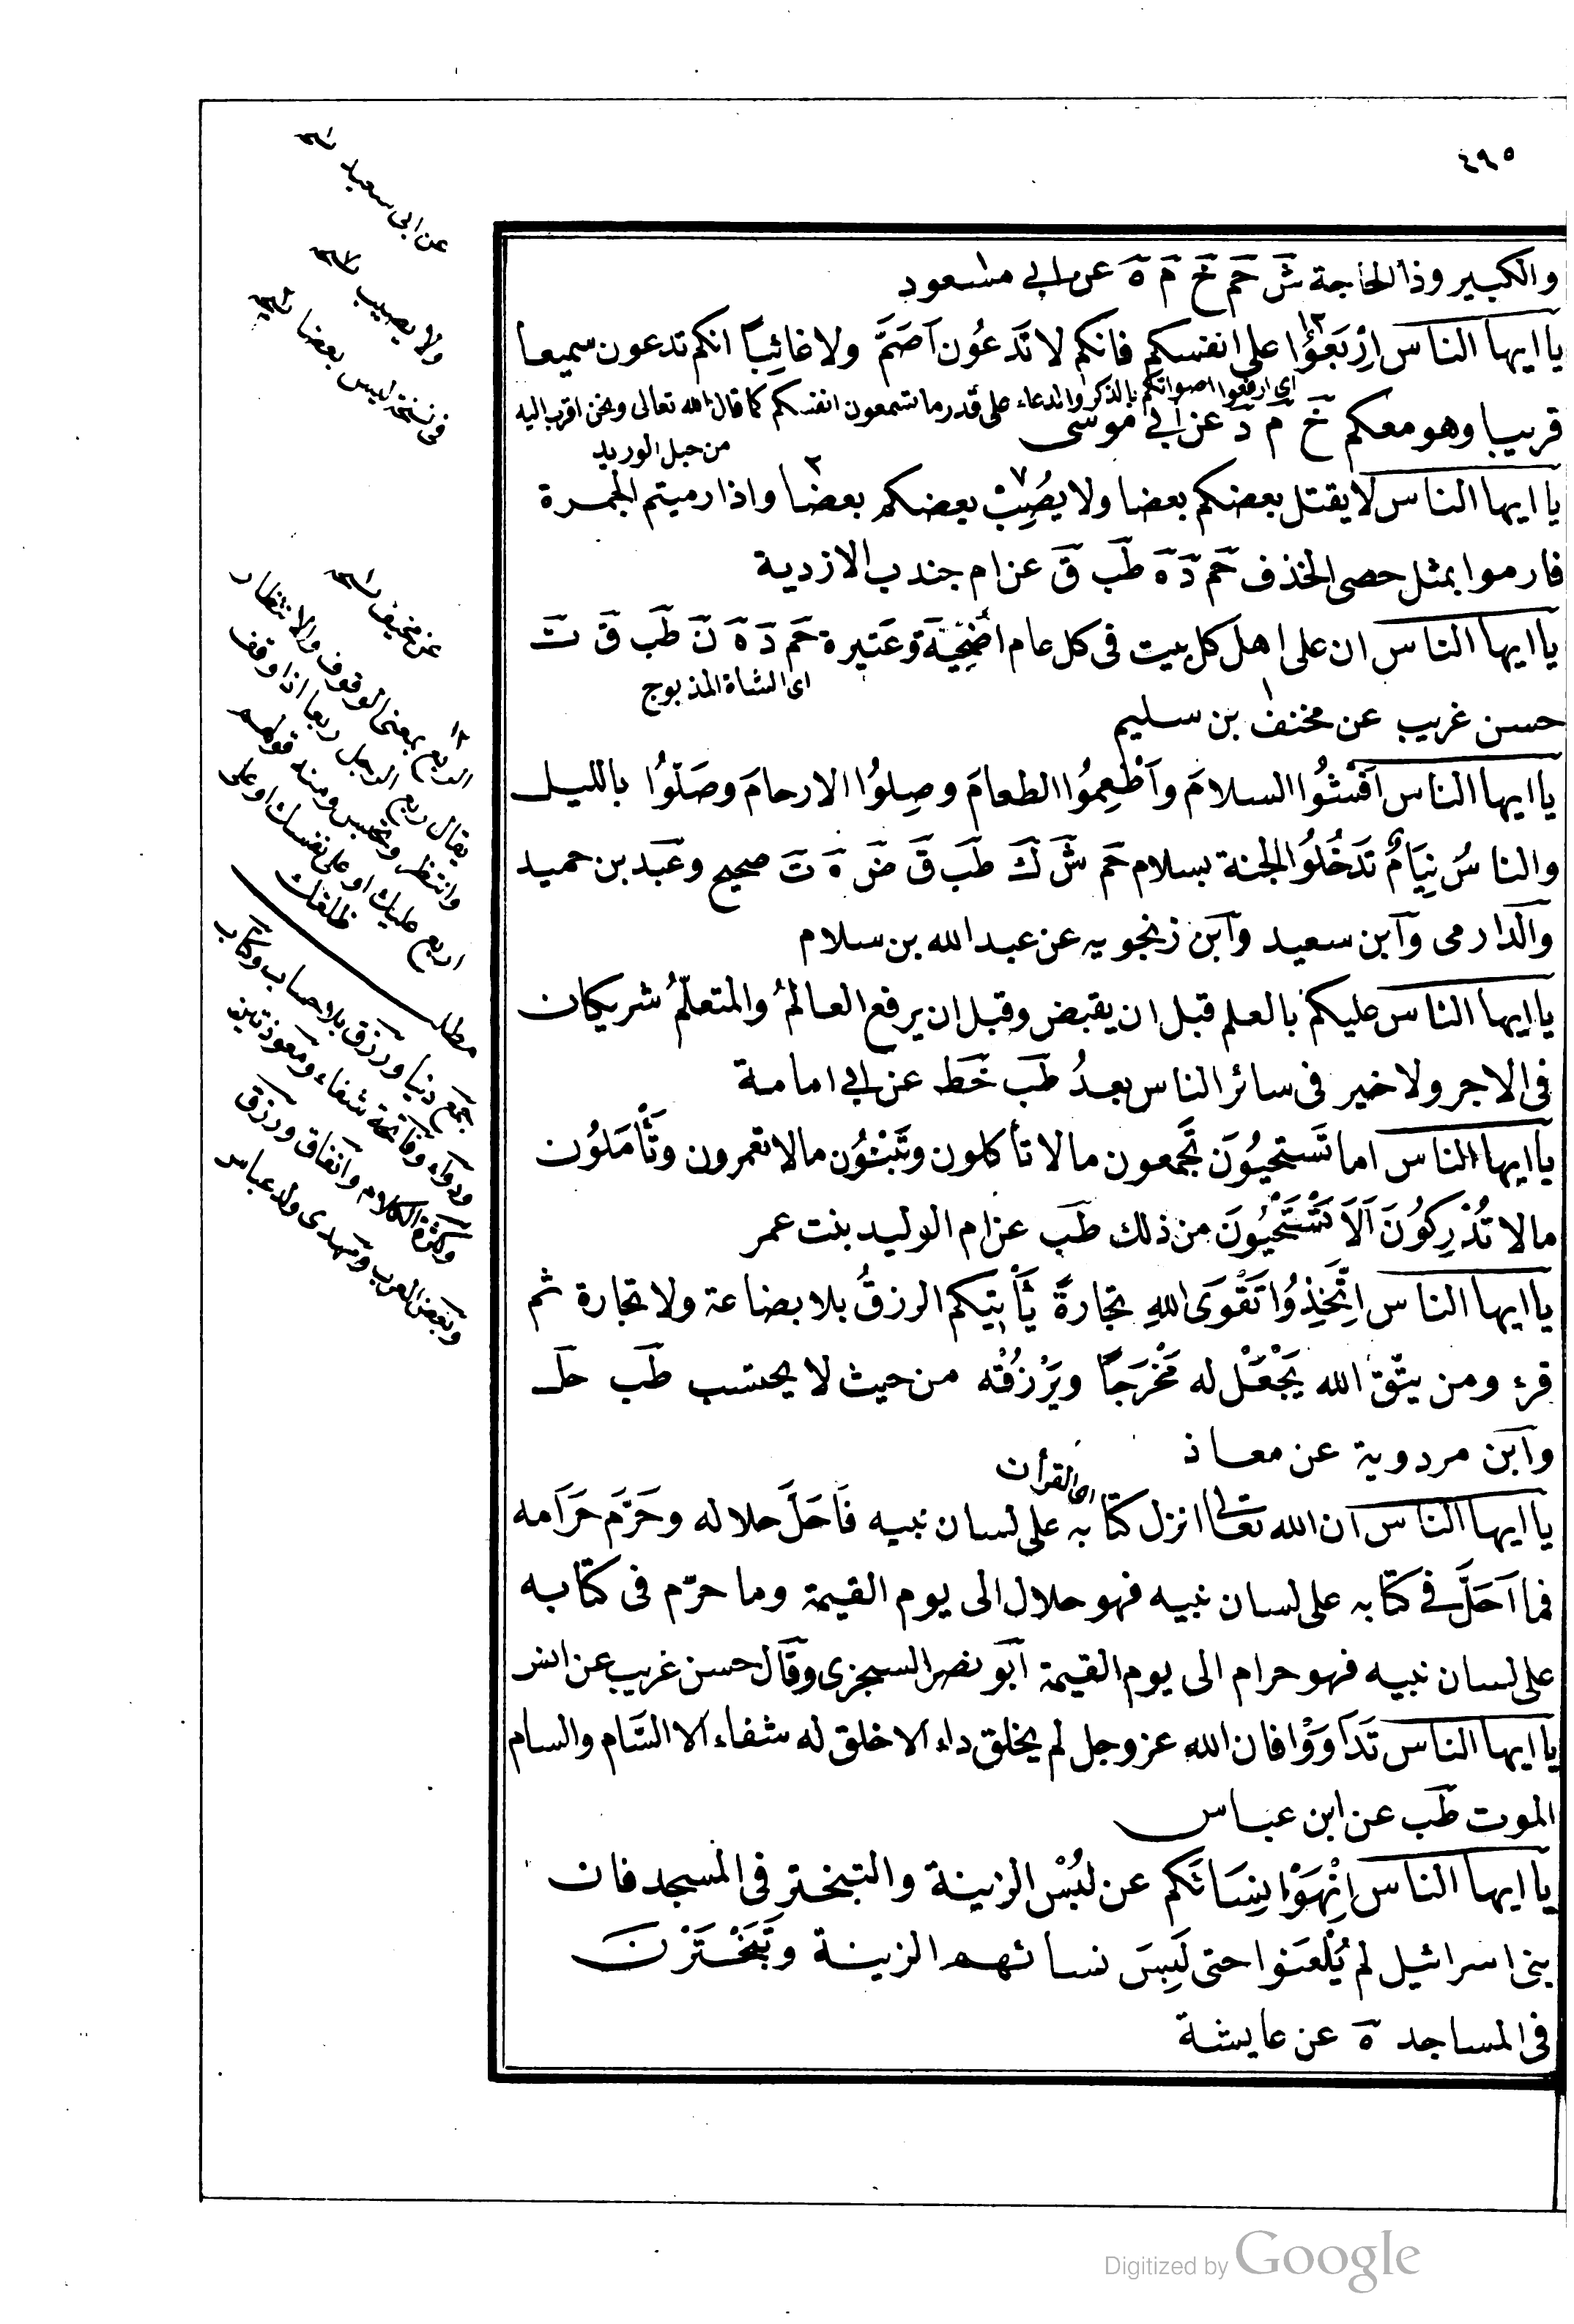 ٤٩٥
والكبير وذا الحاجة ش حم خ م ه عن ابى مسعود
يا ايها الناس اِرْبَعُوْا على انفسكم فانكم لا تَدعُون اَصَمَّ ولا غائِبًا انكم تدعون سميعا
اى ارفعوا اصواتكم بالذكر والدعاء على قدر ما تسمعون انفسكم كما قال الله تعالى ونحن اقرب اليه
قريبا وهو معكم خ م د عن ابى موسى
من حبل الوريد
يا ايها الناس لا يقتل بعضكم بعضا ولا يُصِبْ بعضكم بعضا واذا رميتم الجمرة
فارموا بمثل حصى الخذف حم د ه طب ق عن ام جندب الازدية
يا ايها الناس ان على اهل كل بيت فى كل عام اُضْحِيَّةً وعَتيرة حم د ه ن طب ق ت
اى الشاة المذبوح
حسن غريب عن مخنف بن سليم
يا ايها الناس اَفْشُوا السلامَ واَطْعِمُوا الطعامَ وصِلُوُا الارحامَ وصَلّوُا بالليل
والناسُ نِيَامٌ تَدخُلُوُا الجنة بسلام حم ش ك طب ق ض ه ت صحيح وعبد بن حميد
والدارمى وابن سعيد وابن زنجويه عن عبد الله بن سلام
يا ايها الناس عليكم بالعلم قبل ان يقبض وقبل ان يرفع العالمُ والمتعلّمُ شريكان
فى الاجر ولا خير فى سائر الناس بعدُ طب خط عن ابى امامة
يا ايها الناس اما تَستحيُوَن تَجمعون مالا تأكلون وتَبْنُوُن مالا تعمرون وتَأْمَلُوُن
مالا تُدْرِكوُنَ اَلَا تَسْتَحْيُوُنَ من ذلك طب عن ام الوليد بنت عمر
يا ايها الناس اِتَّخِذِوُا تَقْوَى اللهِ تجارةً يَأْتِيكم الرزقُ بلا بضاعة ولا تجارة ثم
قرء ومن يتّق الله يَجْعَلْ له مَخْرَجًا ويَرْزُقْه من حيث لا يحتسب طب حل
وابن مردوية عن معاذ
اى القرأن
يا ايها الناس ان الله تعالى انزل كتابه على لسان نبيه فَاَحَلَّ حلاله وحَرَّمَ حَرَامه
فما اَحَلَّ فى كتابه على لسان نبيه فهو حلال الى يوم القيمة وما حرّم فى كتابه
على لسان نبيه فهو حرام الى يوم القيمة ابو نصر السجزى وقال حسن غريب عن انس
يا ايها الناس تَدَاوَوْا فان الله عز وجل لم يخلق داء الا خلق له شفاء الا السَّام والسام
الموت طب عن ابن عباس
يا ايها الناس اِنْهَوْا نِسَائَكم عن لبُسْ الزينة والتبختر فى المسجد فان
بنى اسرائيل لم يُلْعَنوا حتى لَبِسَ نسائهم الزينة وتَبَخْتَرْنَ
فى المساجد ه عن عايشة
عن ابى سعيد
ولا يصيب
فى نسخة ليس بعضا
عن مخيف
الربع بمعنى الوقوف والانتظار
يقال ربع الرجل ربعا اذا وقف
وانتظر وتحبس ومنه قولهم
اربع عليك او على نفسك او على
ظلعك
مطلب
جمع دنيا ورزق بلا حساب وكتاب
ودواء وفاتحة شفاء ومعوذتين
وكثرة الكلام وانفاق ورزق
وبعض العرب ومهدى ولد عباس
Digitized by Google